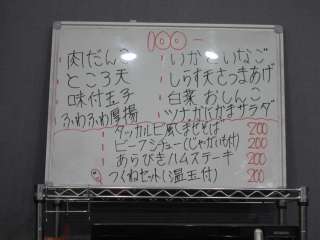 100-
肉だんご いかときいなご
ところ天 しらす天さつまあげ
味付玉子 白菜おしんこ
ふわふわ厚揚 ツナかにかまサラダ
タッカルビ風まぜそば 200
ビーフシチュー(じゃがいも付) 200
あらびきハムステーキ 200
つくねセット(温玉付) 200